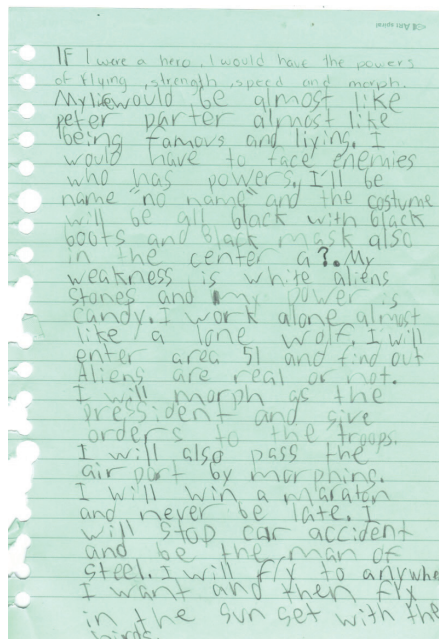 IF I were a hero, I would have the powers
of flying, strength, speed and morph.
My lie would be almost like
peter parter almost like
being famous and liying. I
would have to face enemies
who has powers, I'll be
name "no name" and the costume
will be all black with black
boots and black mask also
in the center a ?. My
weakness is white aliens
stones and my power is
candy. I work alone almost
like a lone wolf. I will
enter area 51 and find out
Aliens are real or not.
I will morph as the
pressident and give
orders to the troops.
I will also pass the
air port by morphing.
I will win a maraton
and never be late. I
will stop car accident
and be the man of
steel. I will fly to anywhe
I want and then fly
in the sun set with the
birds.